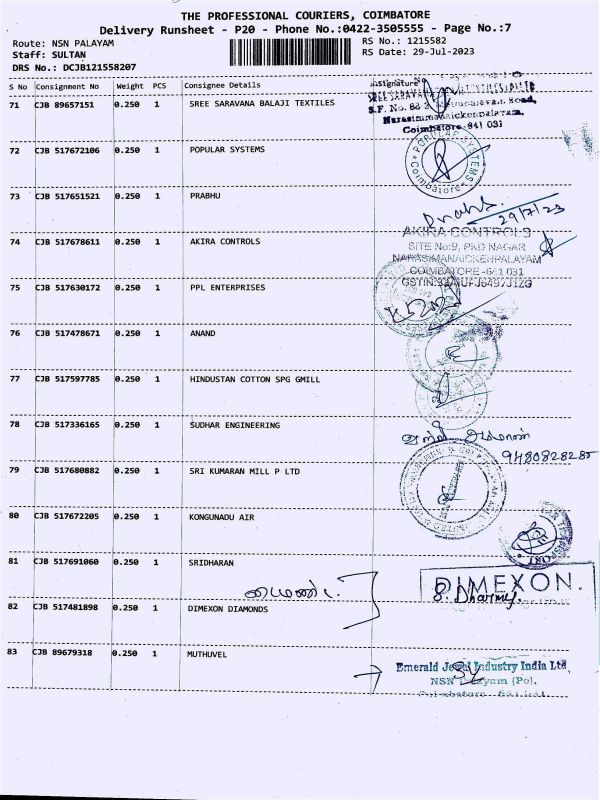 THE PROFESSIONAL COURIERS, COIMBATORE
Delivery Runsheet - P20 - Phone No.:0422-3505555 - Page No.:7
Route: NSN PALAYAM RS No.: 1215582
Staff: SULTAN RS Date: 29-Jul-2023
DRS No.: DCJB121558207
S No Consignment No Weight PCS Consignee Details Signature
71 CJB 89657151 0.250 1 SREE SARAVANA BALAJI TEXTILES
Narasimmanaickenpalayam,
Coimbatore-641 031
72 CJB 517672106 0.250 1 POPULAR SYSTEMS
POPULAR SYSTEMS
Coimbatore
73 CJB 517651521 0.250 1 PRABHU
29/7/23
74 CJB 517678611 0.250 1 AKIRA CONTROLS
AKIRA CONTROLS
SITE No:9, PKD NAGAR
NARASIMANAICKENPALAYAM
COIMBATORE-641 031
75 CJB 517630172 0.250 1 PPL ENTERPRISES
76 CJB 517478671 0.250 1 ANAND
77 CJB 517597785 0.250 1 HINDUSTAN COTTON SPG GMILL
78 CJB 517336165 0.250 1 SUDHAR ENGINEERING
9480828285
79 CJB 517680882 0.250 1 SRI KUMARAN MILL P LTD
80 CJB 517672205 0.250 1 KONGUNADU AIR
81 CJB 517691060 0.250 1 SRIDHARAN
DIMEXON.
82 CJB 517481898 0.250 1 DIMEXON DIAMONDS
83 CJB 89679318 0.250 1 MUTHUVEL
Emerald Jewel Industry India Ltd,
(Po),